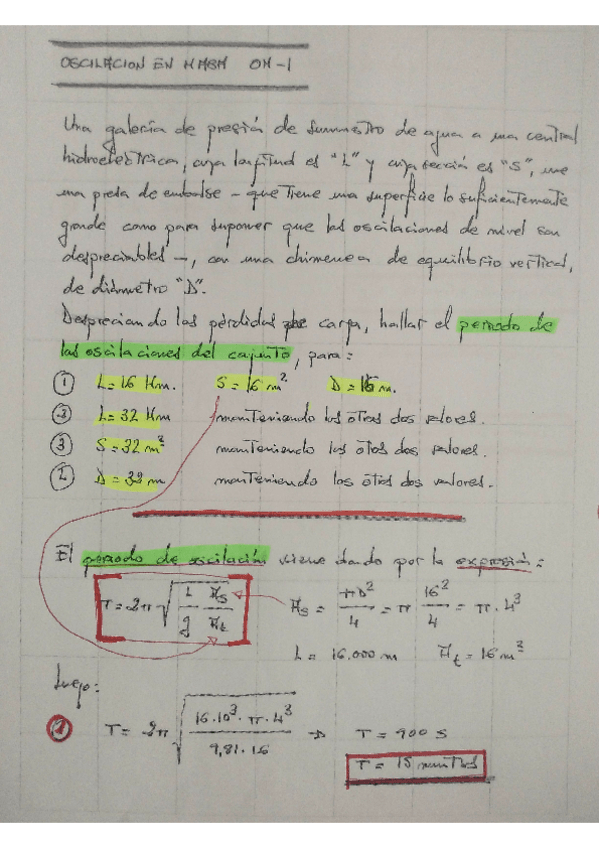 OSCILACION EN MASA OM-1
Una galería de presión de suministro de agua a una central
hidroeléctrica, cuya longitud es "L" y cuya sección es "S", une
una presa de embalse - que tiene una superficie lo suficientemente
grande como para suponer que las oscilaciones de nivel son
despreciables -, con una chimenea de equilibrio vertical,
de diámetro "D".
Despreciando las pérdidas de carga, hallar el periodo de
las oscilaciones del conjunto, para:
① L=16 Km. S=16 m² D=16 m.
② L=32 Km manteniendo los otros dos valores.
③ S=32 m² manteniendo los otros dos valores.
D=32 m manteniendo los otros dos valores.
El periodo de oscilación viene dando por la expresión:
T=2π√(L/g · As/At) As = πD²/4 = π 16²/4 = π·4³
L = 16.000 m At = 16 m²
Luego:
① T = 2π√(16·10³·π·4³/9,81·16) → T = 900 s
T = 15 minutos